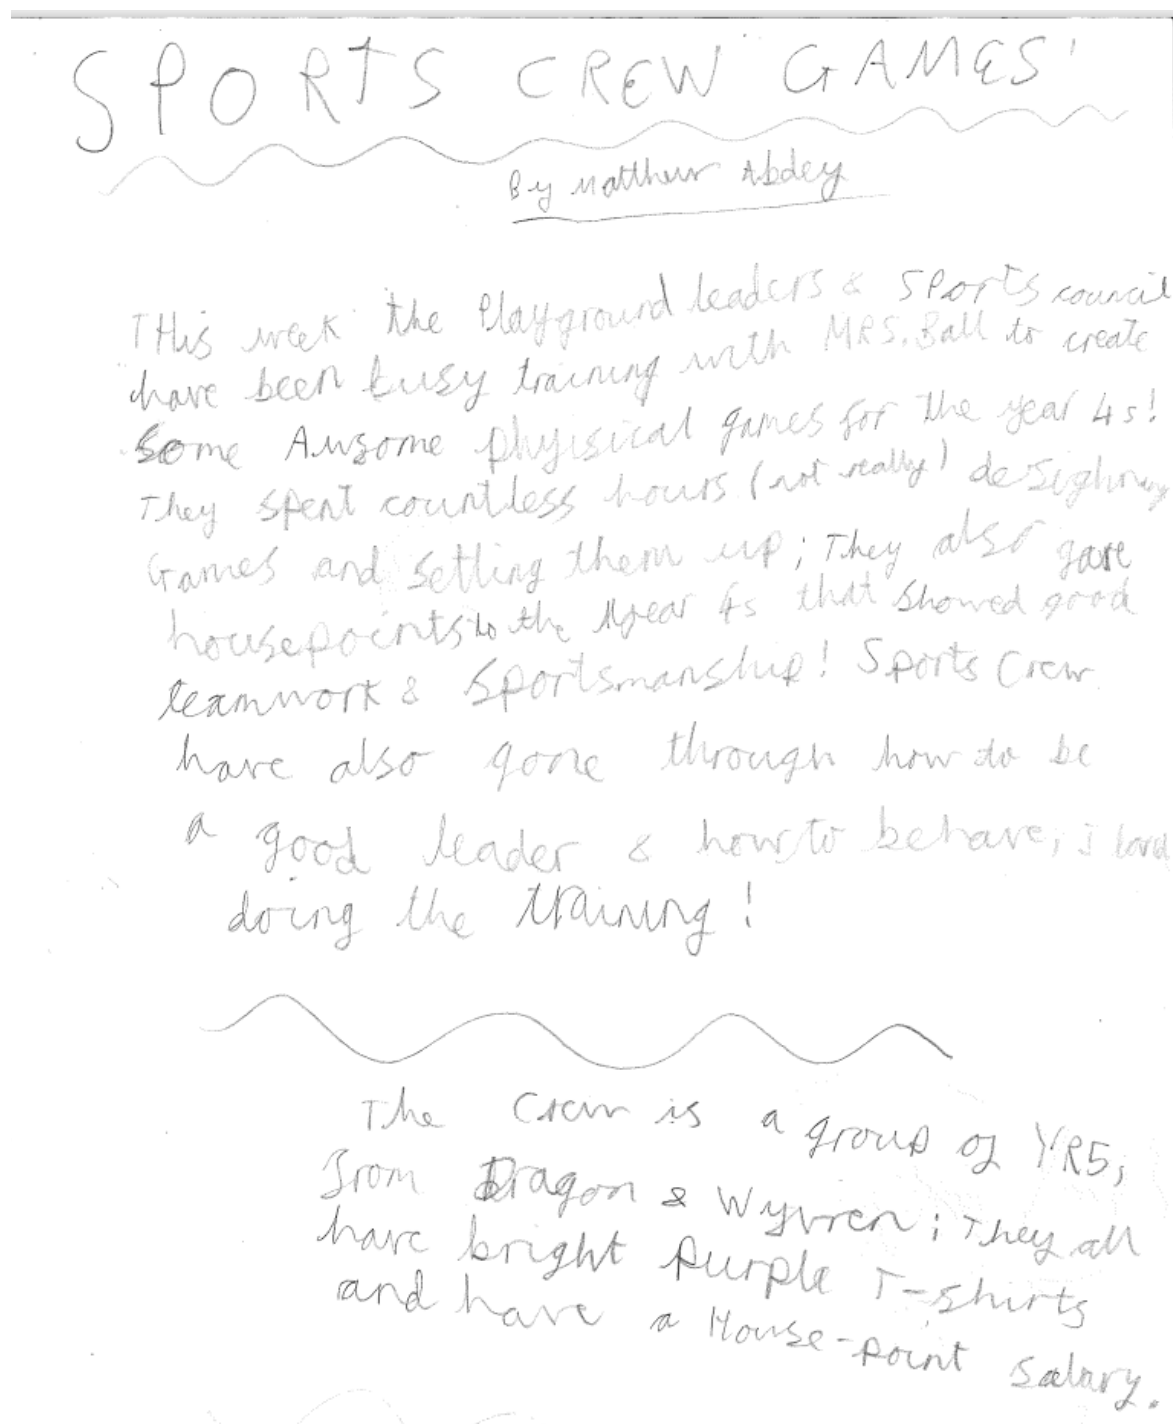 SPORTS CREW GAMES!
By Matthew Abdey
THis week the Playground leaders & SPorts council
have been busy training with MRS. Ball to create
some Awsome phyisical games for the year 4s!
They spent countless hours (not really) desighning
Games and setting them up; They also gave
housepoints to the year 4s that showed good
teamwork & Sportsmanship! Sports Crew
have also gone through how to be
a good leader & how to behave; I loved
doing the training!
The Crew is a group of YR5,
from Dragon & Wyvren; They all
have bright Purple T-shirts
and have a House-point salary.